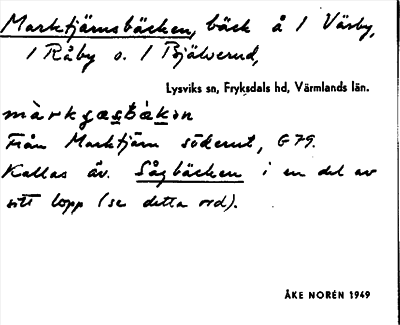 Marktjärnsbäcken, bäck å 1 Väsby,
1 Råby o. 1 Bjälverud,
Lysviks sn, Fryksdals hd, Värmlands län.
Från Marktjärn söderut, G79.
Kallas äv. Sågbäcken i en del av
sitt lopp (se detta ord).
ÅKE NORÉN 1949